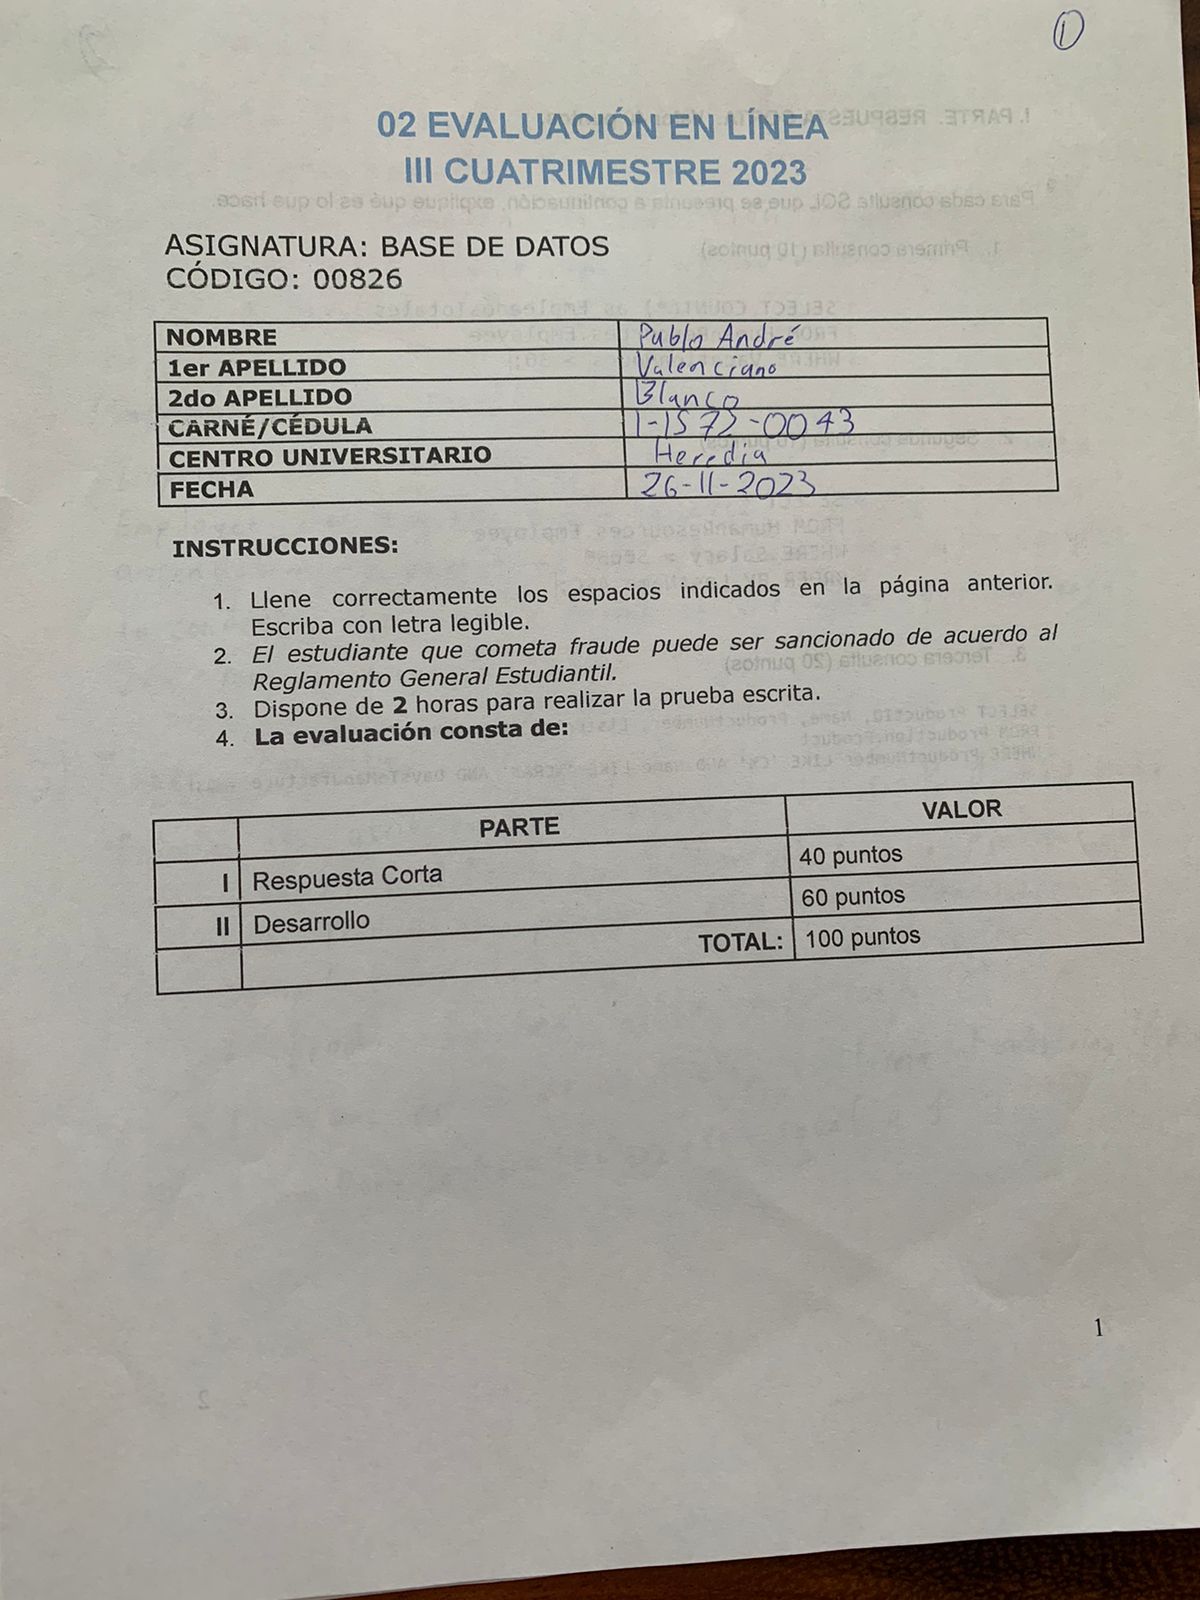 1
02 EVALUACIÓN EN LÍNEA
III CUATRIMESTRE 2023
ASIGNATURA: BASE DE DATOS
CÓDIGO: 00826
NOMBRE Pablo André
1er APELLIDO Valenciano
2do APELLIDO Blanco
CARNÉ/CÉDULA 1-1572-0043
CENTRO UNIVERSITARIO Heredia
FECHA 26-11-2023
INSTRUCCIONES:
1. Llene correctamente los espacios indicados en la página anterior.
Escriba con letra legible.
2. El estudiante que cometa fraude puede ser sancionado de acuerdo al
Reglamento General Estudiantil.
3. Dispone de 2 horas para realizar la prueba escrita.
4. La evaluación consta de:
PARTE VALOR
I Respuesta Corta 40 puntos
II Desarrollo 60 puntos
TOTAL: 100 puntos
1